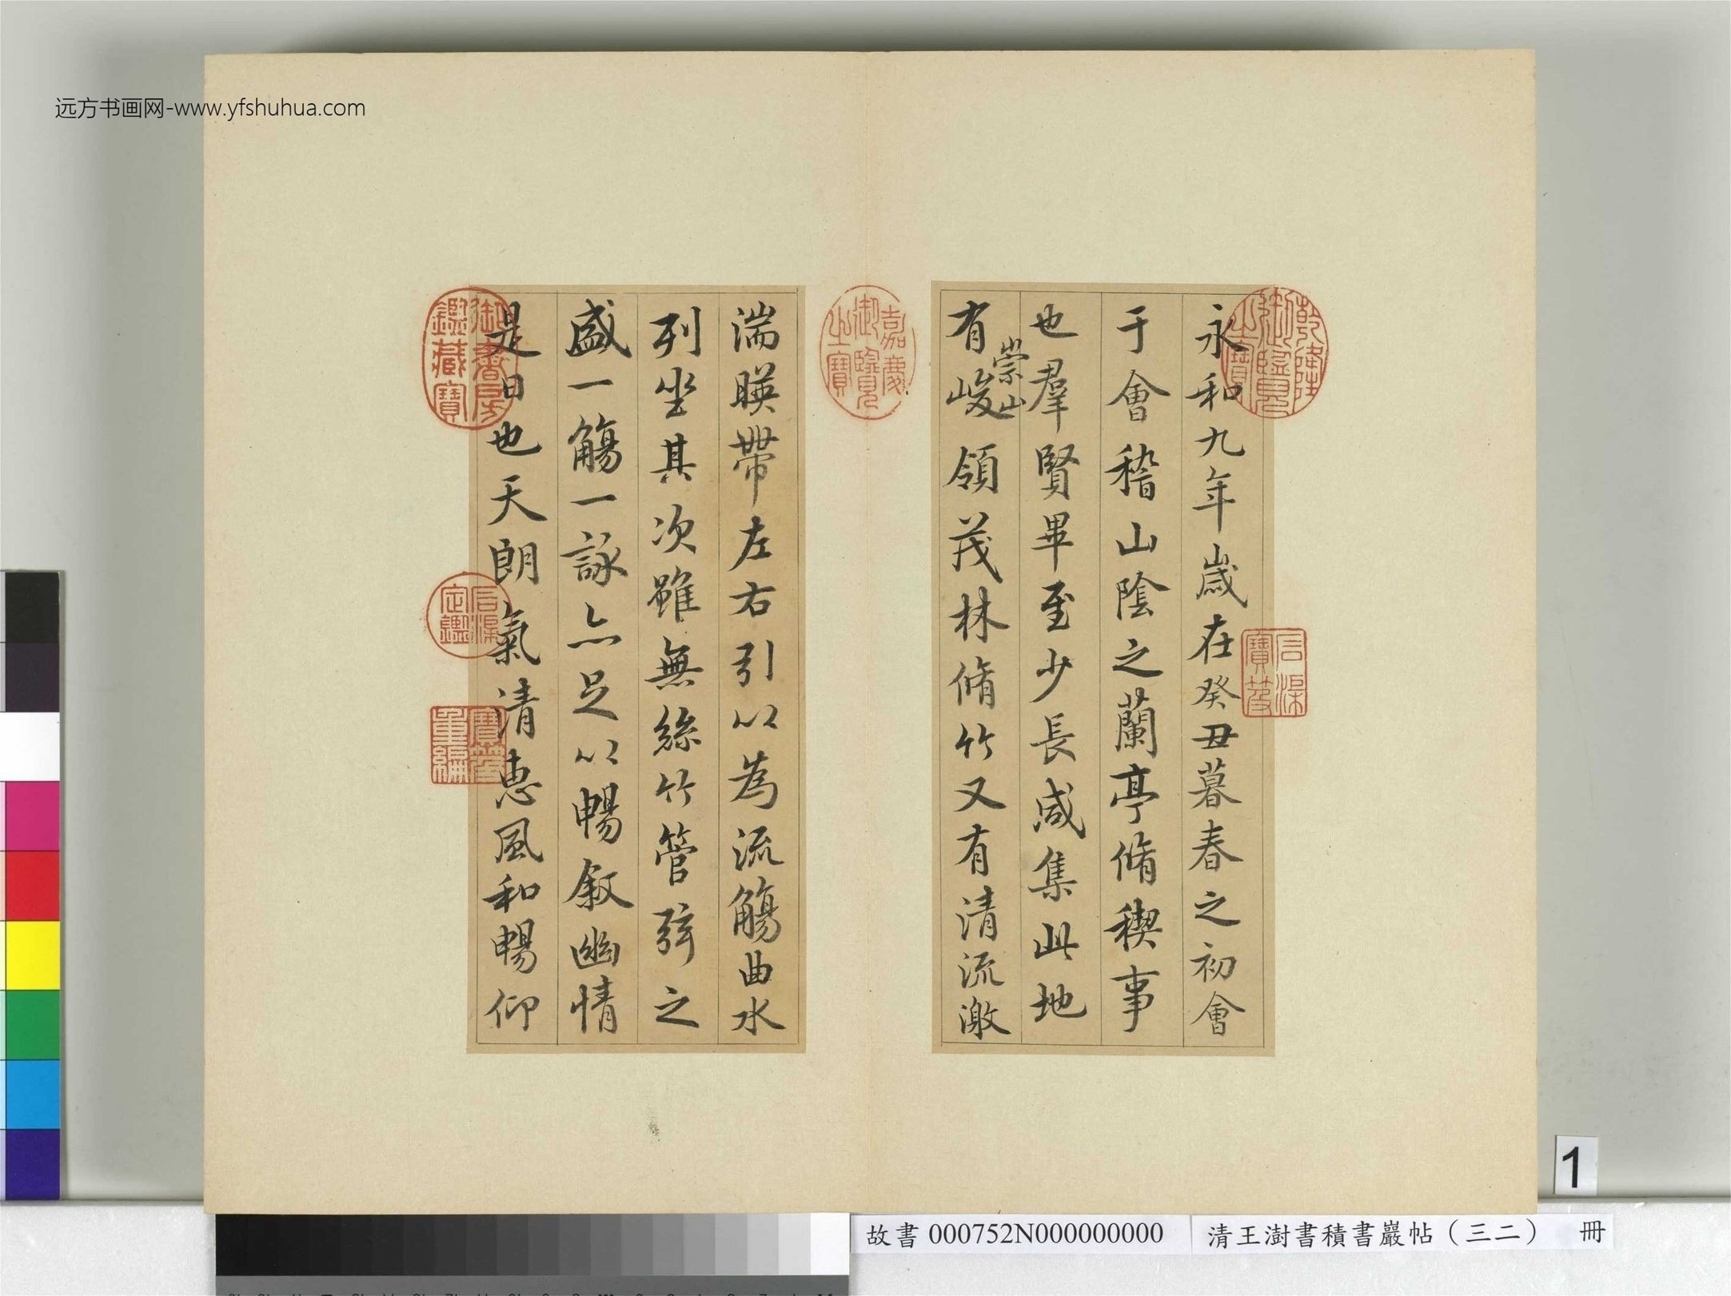 远方书画网-www.yfshuhua.com
永和九年歲在癸丑暮春之初會
于會稽山陰之蘭亭脩稧事
也羣賢畢至少長咸集此地
有峻領茂林脩竹又有清流激
崇山
湍暎帶左右引以為流觴曲水
列坐其次雖無絲竹管弦之
盛一觴一詠亦足以暢敘幽情
是日也天朗氣清惠風和暢仰
乾隆御覽之寶
石渠寶笈
嘉慶御覽之寶
御書房鑑藏寶
石渠定鑑
寶笈重編
1
故書 000752N000000000
清王澍書積書巖帖（三二） 冊